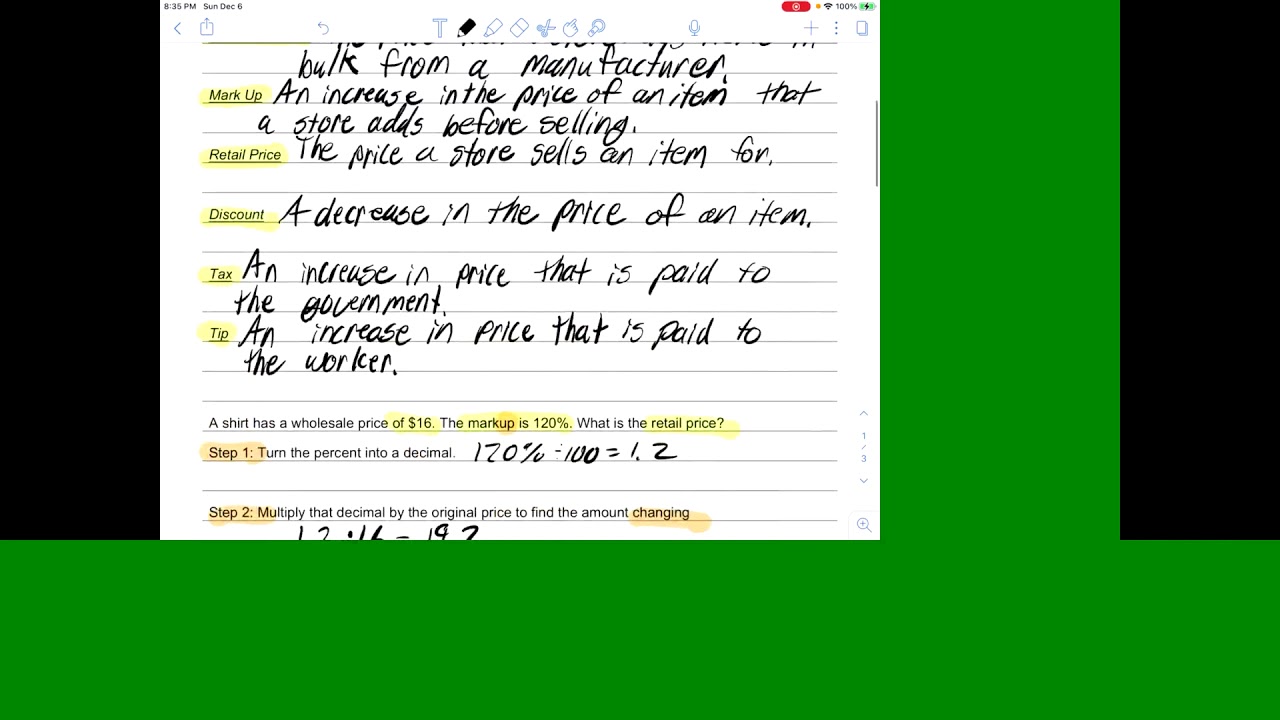 8:35 PM Sun Dec 6
100%
T
bulk from a manufacturer.
Mark Up An increase in the price of an item that
a store adds before selling.
Retail Price The price a store sells an item for.
Discount A decrease in the price of an item.
Tax An increase in price that is paid to
the government.
Tip An increase in price that is paid to
the worker.
A shirt has a wholesale price of $16. The markup is 120%. What is the retail price?
1
/
3
Step 1: Turn the percent into a decimal. 120% ÷100 = 1.2
Step 2: Multiply that decimal by the original price to find the amount changing
1.2 · 16 = 19.2